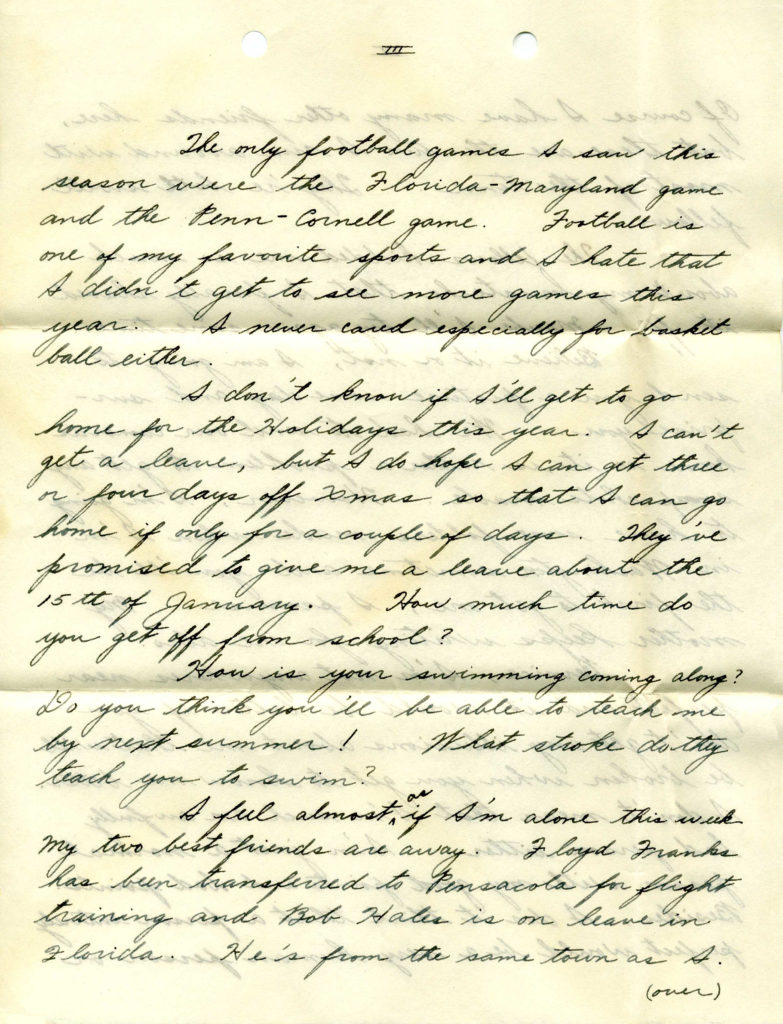 III
The only football games I saw this
season were the Florida-Maryland game
and the Penn-Cornell game. Football is
one of my favorite sports and I hate that
I didn't get to see more games this
year. I never cared especially for basket
ball either.
I don't know if I'll get to go
home for the Holidays this year. I can't
get a leave, but I do hope I can get three
or four days off Xmas so that I can go
home if only for a couple of days. They've
promised to give me a leave about the
15th of January. How much time do
you get off from school?
How is your swimming coming along?
Do you think you'll be able to teach me
by next summer! What stroke do they
teach you to swim?
I feel almost as if I'm alone this week
My two best friends are away. Floyd Franks
has been transferred to Pensacola for flight
training and Bob Hales is on leave in
Florida. He's from the same town as I.
(over)